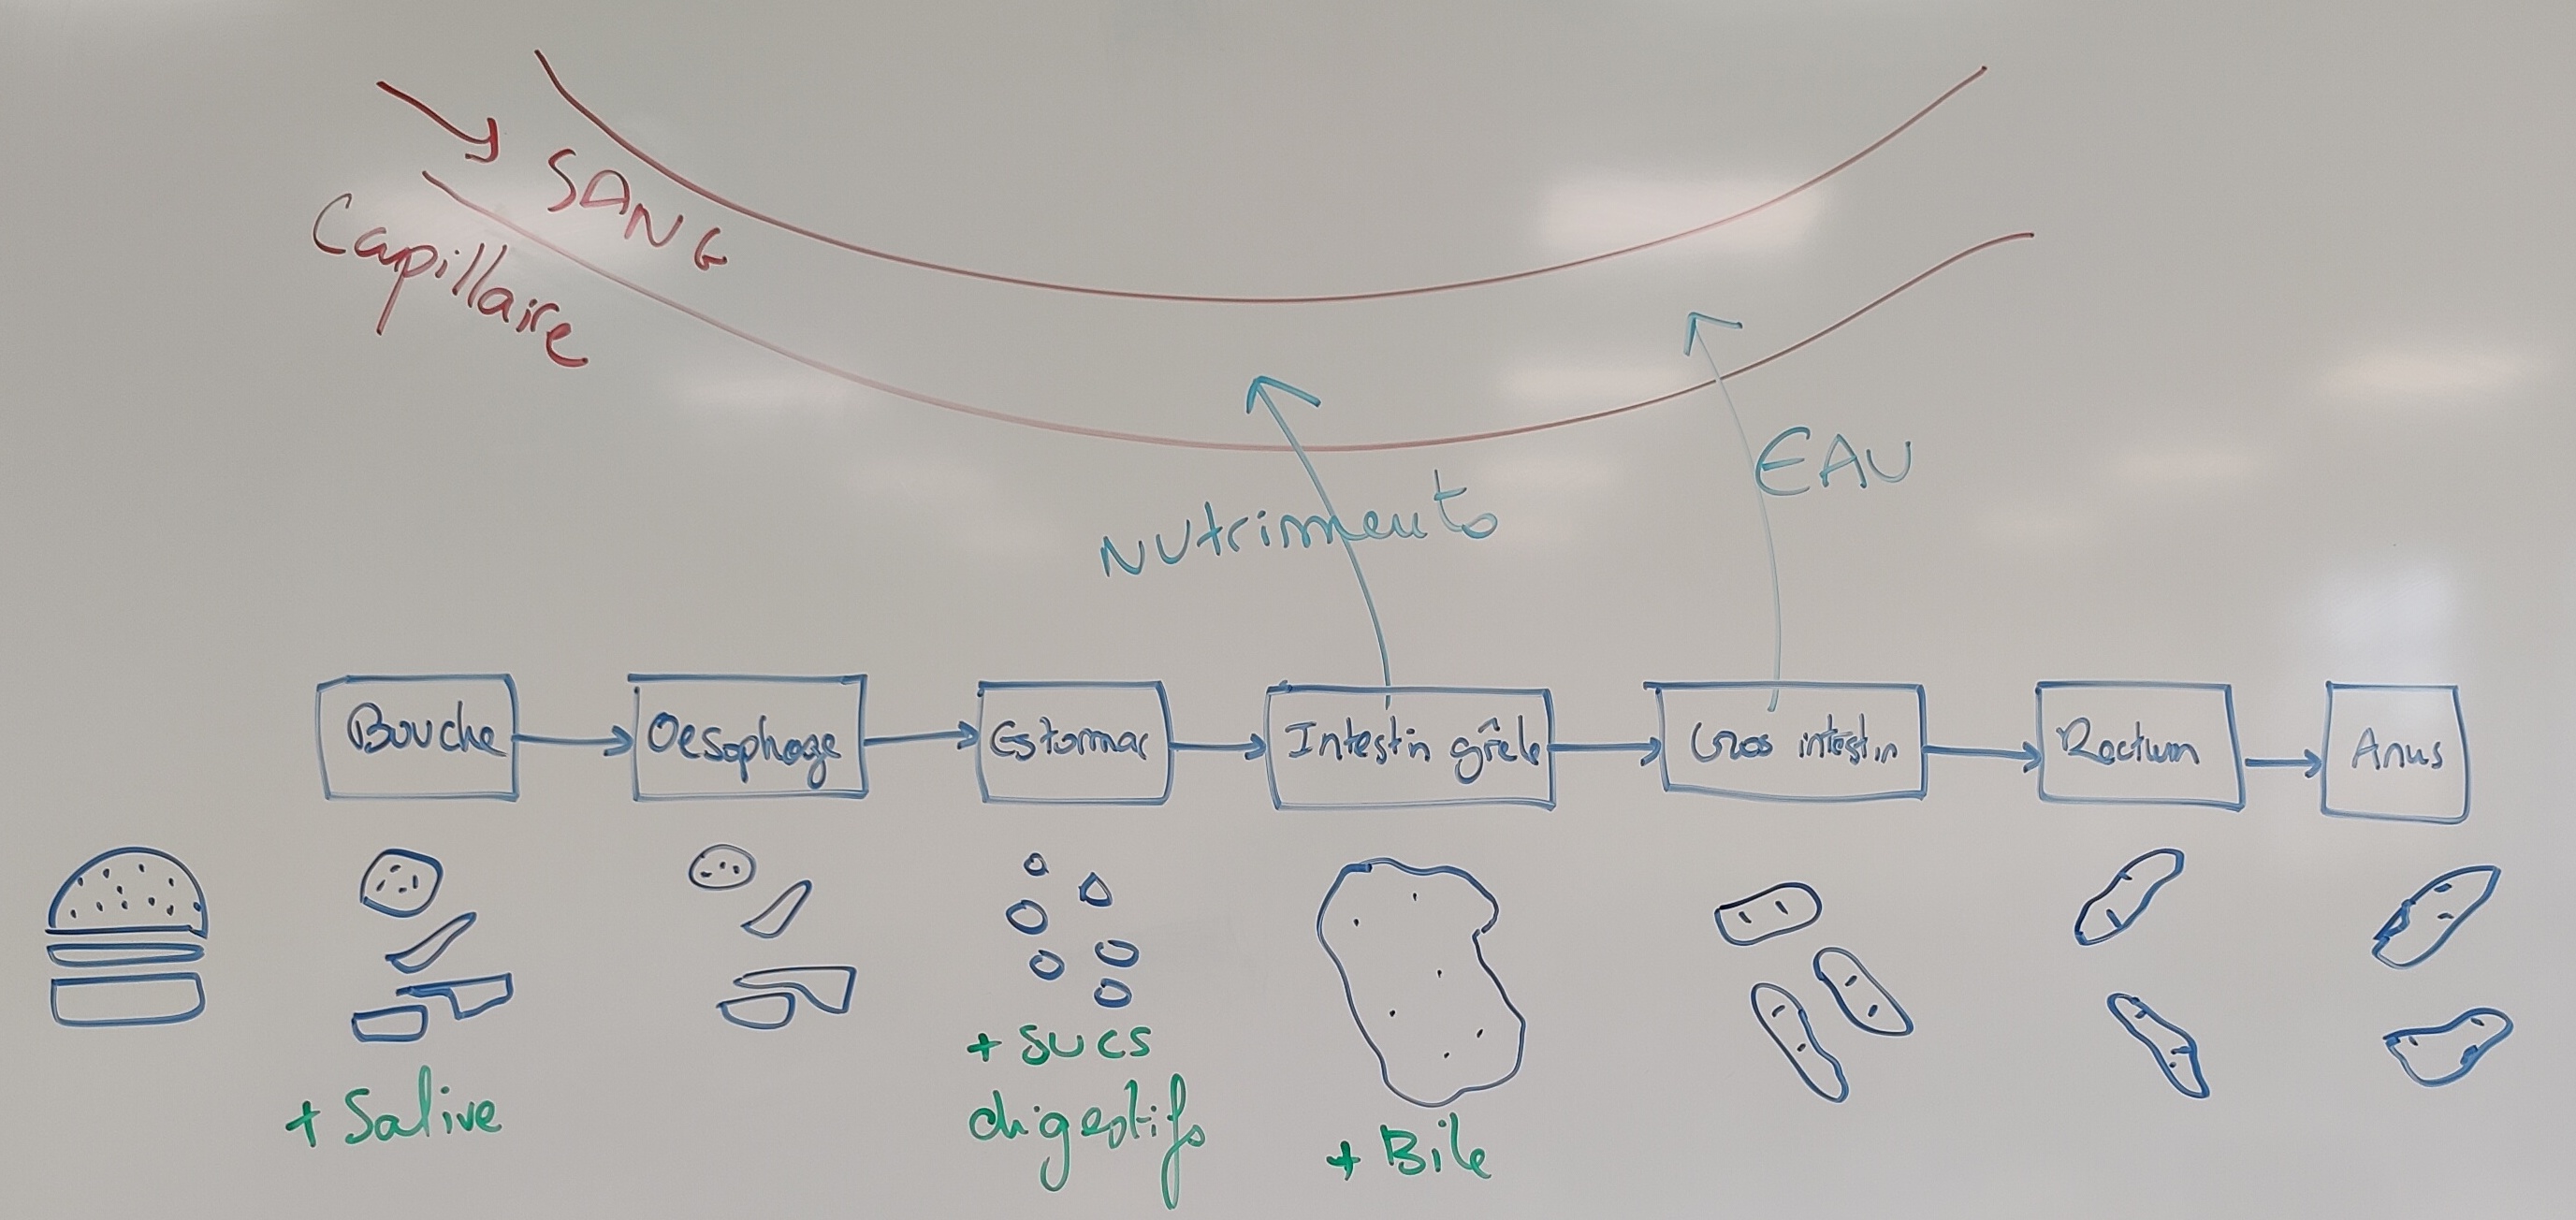 SANG
Capillaire
EAU
Nutriments
Bouche
Oesophage
Estomac
Intestin grêle
Gros intestin
Rectum
Anus
+ Sucs
digestifs
+ Salive
+ Bile